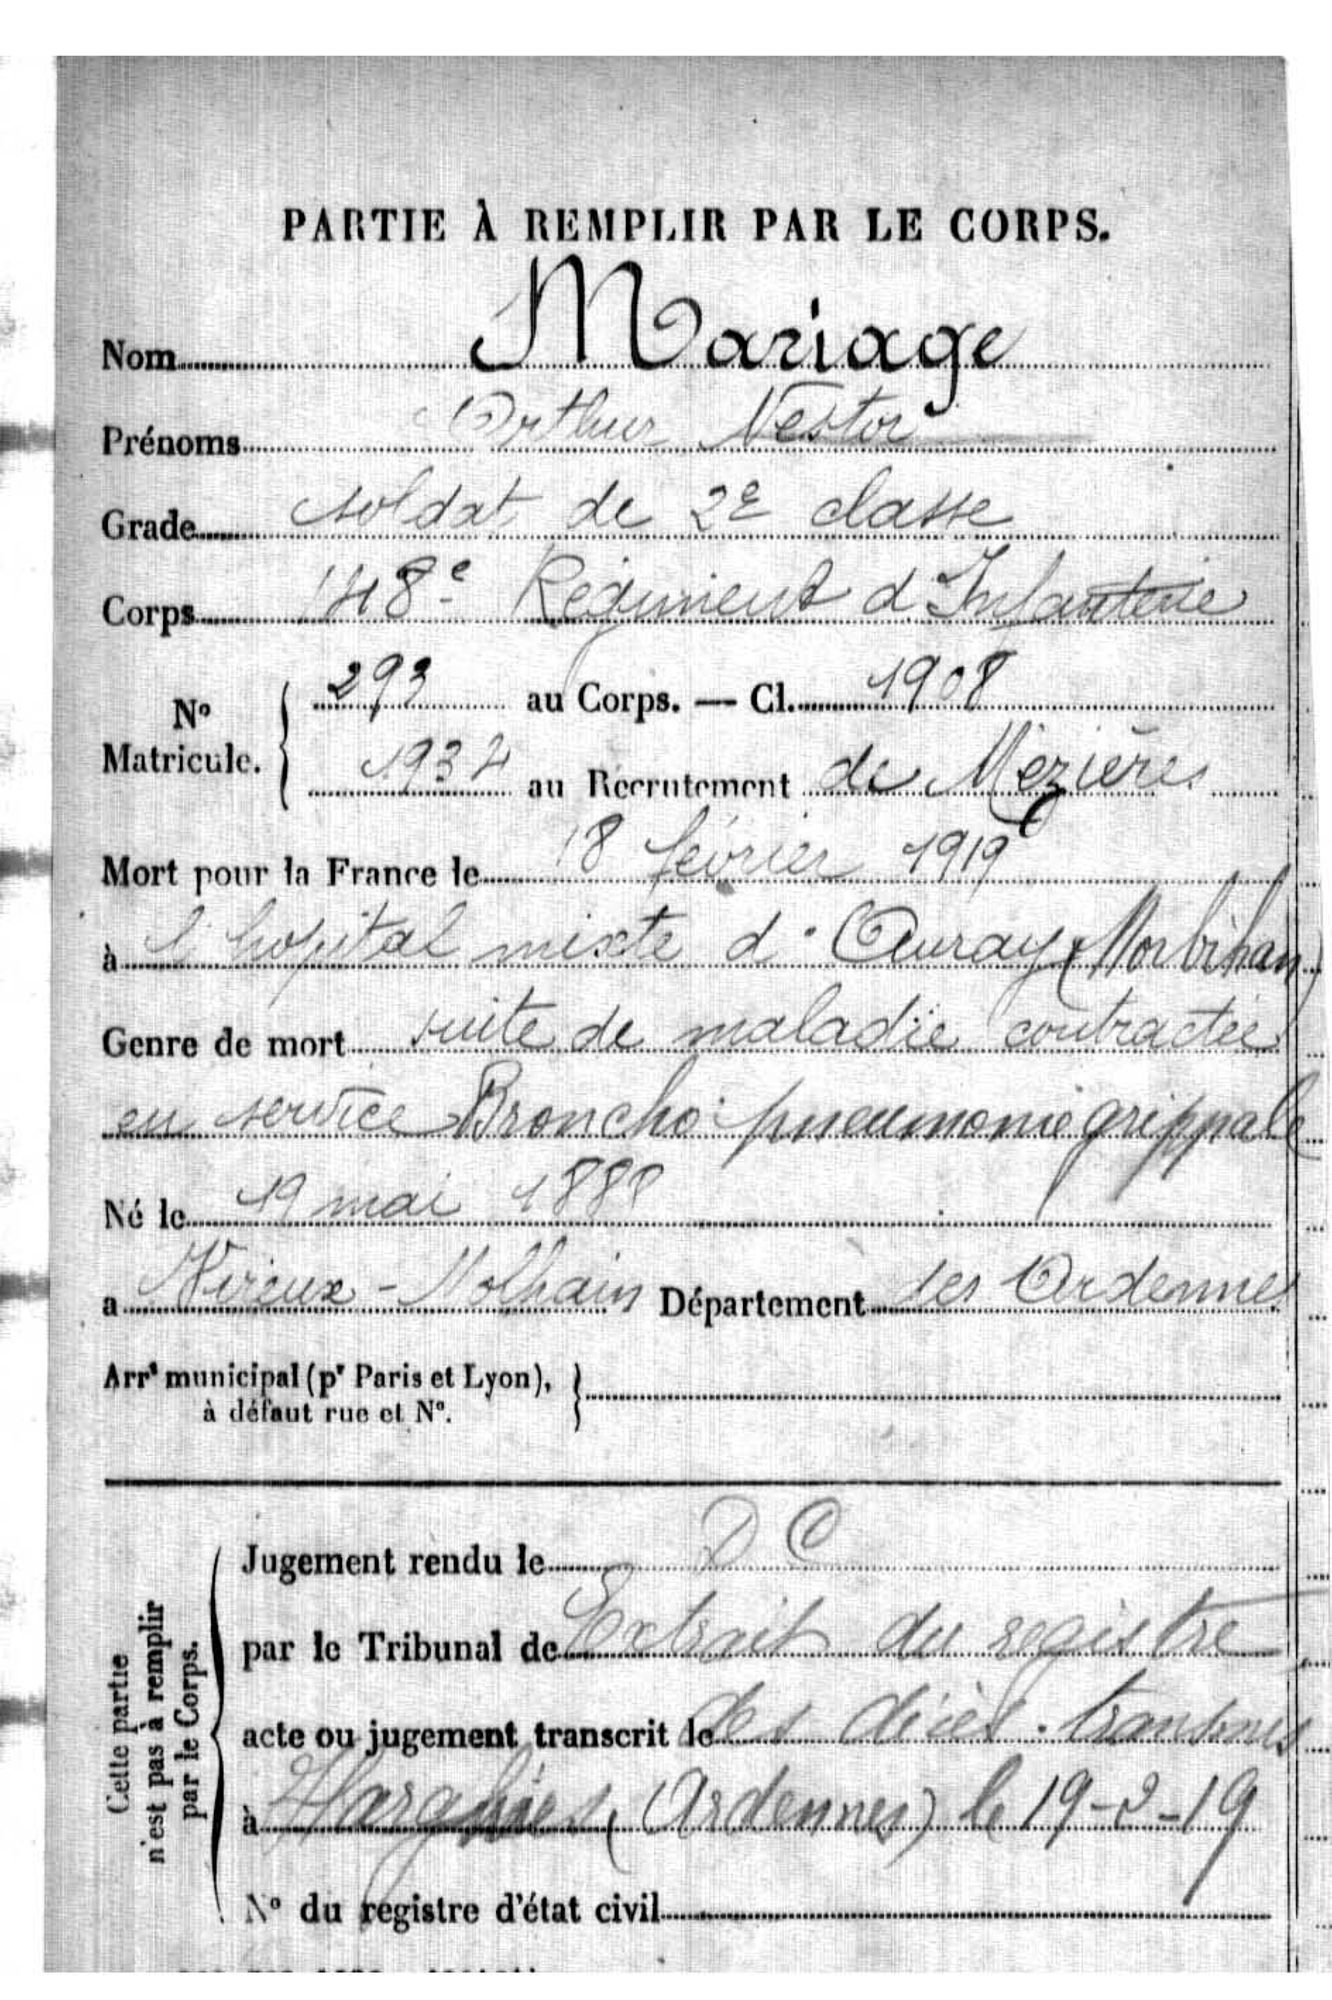 PARTIE À REMPLIR PAR LE CORPS.
Nom Mariage
Prénoms Arthur Nestor
Grade soldat de 2e classe
Corps 148e Régiment d'Infanterie
No Matricule. 293 au Corps. — Cl. 1908
1934 au Recrutement de Mézières
Mort pour la France le 18 février 1919
à l'hopital mixte d'Auray (Morbihan)
Genre de mort suite de maladie contractée
en service Broncho-pneumonie grippale
Né le 19 mai 1888
a Vireux-Molhain Département des Ardennes
Arrt municipal (pr Paris et Lyon),
à défaut rue et No.
Cette partie
n'est pas à remplir
par le Corps.
Jugement rendu le D C
par le Tribunal de Extrait du registre
acte ou jugement transcrit le des décès transmis
à Hargnies (Ardennes) le 19-2-19
No du registre d'état civil